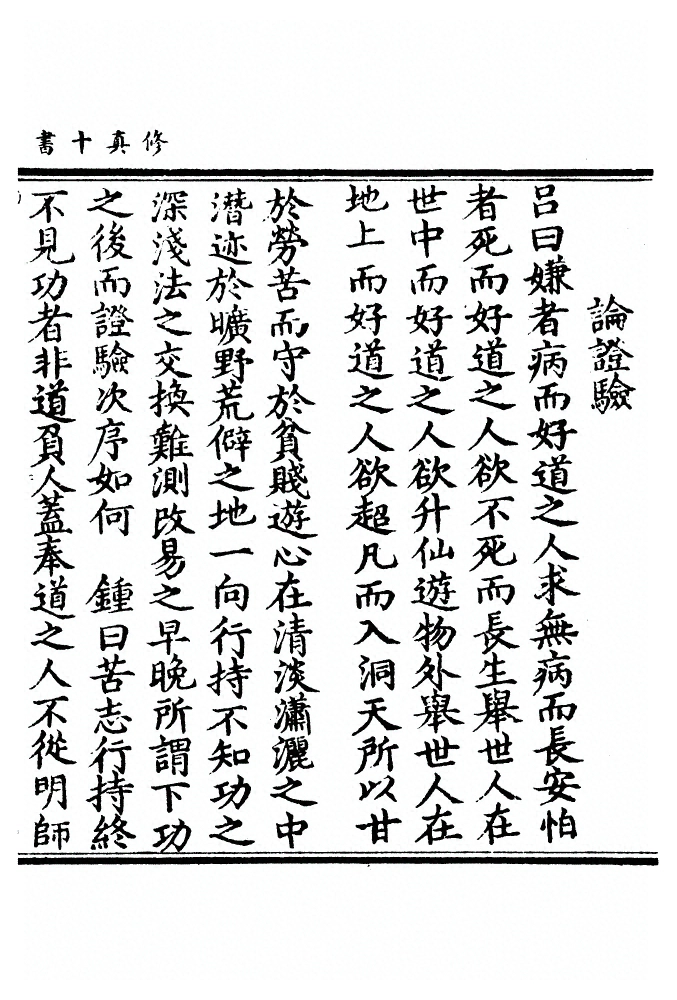 修真十書
論證驗
呂曰嫌者病而好道之人求無病而長安怕
者死而好道之人欲不死而長生舉世人在
世中而好道之人欲升仙遊物外舉世人在
地上而好道之人欲超凡而入洞天所以甘
於勞苦而守於貧賤遊心在清淡瀟灑之中
潛迹於曠野荒僻之地一向行持不知功之
深淺法之交換難測改易之早晚所謂下功
之後而證驗次序如何　鍾曰苦志行持終
不見功者非道負人蓋奉道之人不從明師